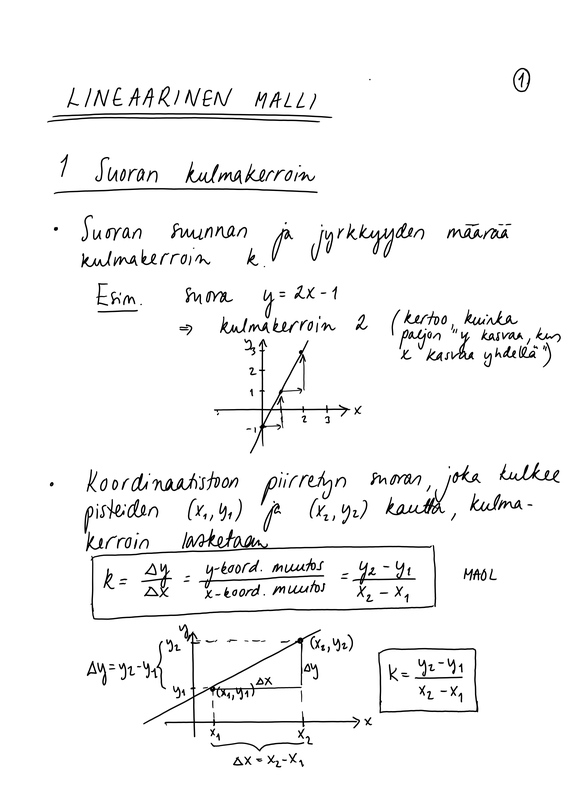 1
LINEAARINEN MALLI
1 Suoran kulmakerroin
• Suoran suunnan ja jyrkkyyden määrää
kulmakerroin k.
Esim. suora y = 2x - 1
⇒ kulmakerroin 2 (kertoo, kuinka
paljon "y kasvaa, kun
x kasvaa yhdellä")
y
3
2
1
2 3 x
-1
• Koordinaatistoon piirretyn suoran, joka kulkee
pisteiden (x₁, y₁) ja (x₂, y₂) kautta, kulma-
kerroin lasketaan
k = Δy/Δx = y-koord. muutos/x-koord. muutos = y₂ - y₁/x₂ - x₁ MAOL
y
y₂ (x₂, y₂)
Δy = y₂ - y₁ Δy
y₁ (x₁, y₁) Δx
k = y₂ - y₁/x₂ - x₁
x₁ x₂ x
Δx = x₂ - x₁